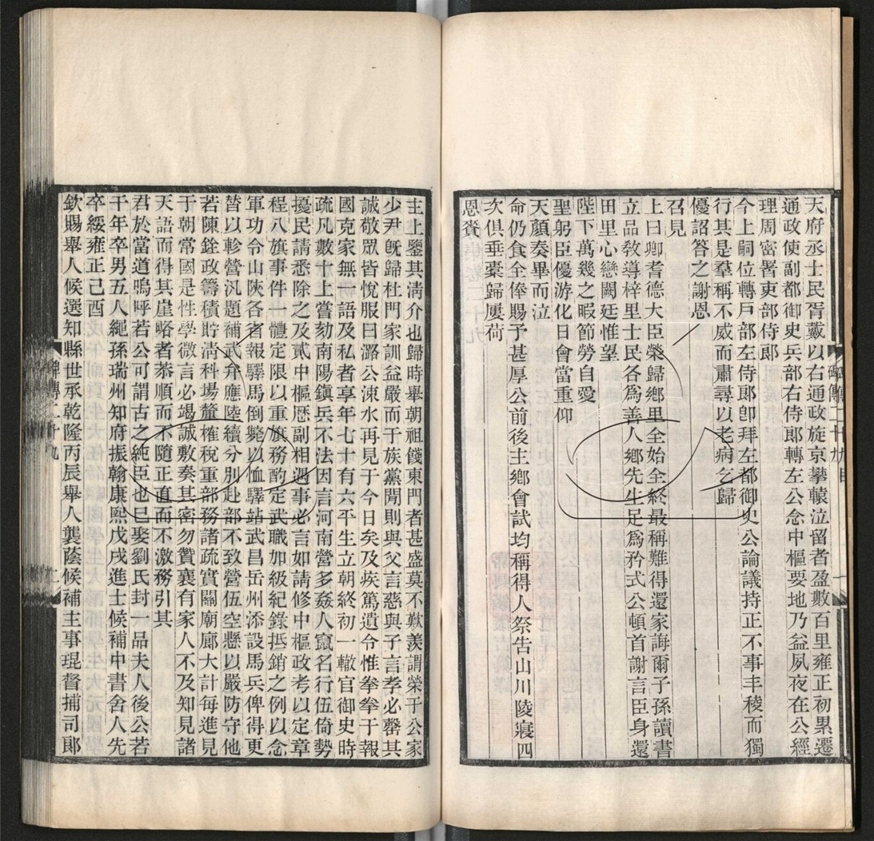 天府丞士民胥戴以右通政旋京攀轅泣留者盈數百里雍正初累遷
通政使副都御史兵部右侍郎轉左公念中樞要地乃益夙夜在公經
理周密署吏部侍郎
今上嗣位轉戶部左侍郎卽拜左都御史公論議持正不事丰稜而獨
行其是羣稱不威而肅尋以老病乞歸
優詔答之謝恩
召見
上曰卿耆德大臣榮歸鄉里全始全終最稱難得還家誨爾子孫讀書
立品敎導梓里士民各爲善人鄉先生足爲矜式公頓首謝言臣身還
田里心戀闕廷惟望
陛下萬幾之暇節勞自愛
聖躬臣優游化日會當重仰
天顏奏畢而泣
命仍食全俸賜予甚厚公前後主鄉會試均稱得人祭告山川陵寢四
次俱垂橐歸屢荷
恩賚
主上鑒其淸介也歸時舉朝祖餞東門者甚盛莫不歎羨謂榮于公家
少尹旣歸杜門家訓益嚴而于族黨閒則與父言慈與子言孝必罄其
誠敬眾皆悅服曰潞公涑水再見于今日矣及疾篤遺令惟拳拳于報
國克家無一語及私者享年七十有六平生立朝終初一轍官御史時
疏凡數十上嘗劾南陽鎭兵不法因言河南營多姦人竄名行伍倚勢
擾民請悉除之及貳中樞厯副相遇事必言如請修中樞政考以定章
程八旗事件一體定限以重旗務酌定武職加級紀錄抵銷之例以念
軍功令山陝各省報驛馬倒斃以恤驛站武昌岳州添設馬兵俾得更
替以軫營汛題補武弁應陸續分別赴部不致營伍空懸以嚴防守他
若陳銓政籌積貯淸科場釐榷稅重部務諸疏實關廟廊大計每進見
于朝常國是性學微言必竭誠敷奏其密勿贊襄有家人不及知見諸
天語而得其崖略者恭順而不隨正直而不激務引其
君於當道嗚呼若公可謂古之純臣也巳娶劉氏封一品夫人後公若
干年卒男五人繩孫瑞州知府振翰康熙戊戌進士候補中書舍人先
卒綏雍正己酉
欽賜舉人候選知縣世承乾隆丙辰舉人襲蔭候補主事琨督捕司郎
碑傳二十九